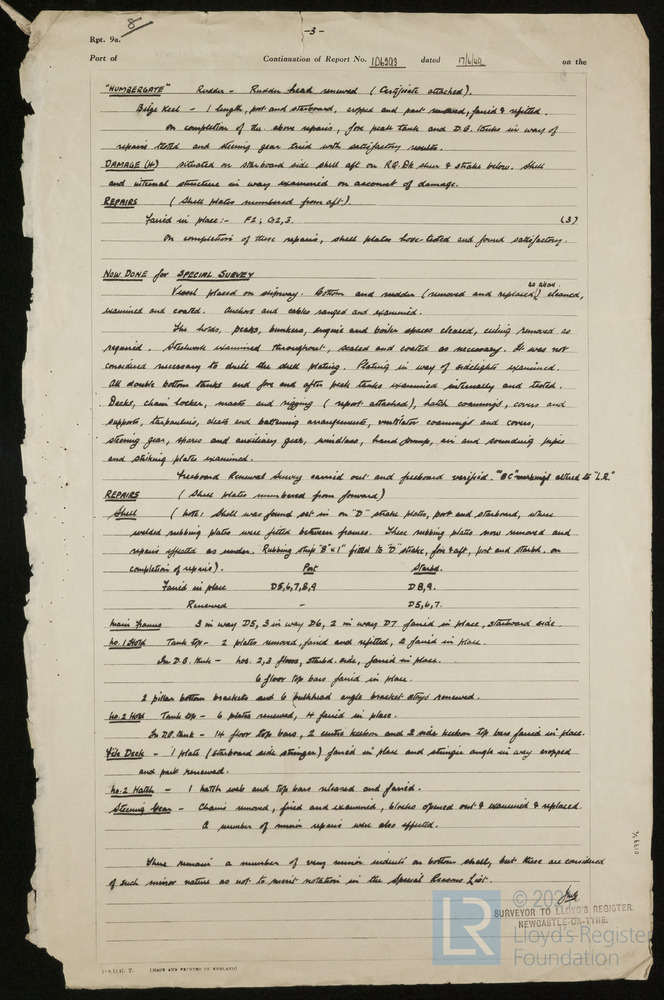 8
-3-
Rpt. 9a.
Port of Continuation of Report No. 106293 dated 17/6/49 on the
"HUMBERGATE" Rudder - Rudder head renewed (Certificate attached).
Bilge Keel - 1 length, port and starboard, cropped and part renewed, faired & refitted.
On completion of the above repairs, fore peak tank and D.B. tanks in way of
repairs tested and steering gear tried with satisfactory results.
DAMAGE (4) situated on starboard side shell aft on RQ. Dk sheer & strake below. Shell
and internal structure in way examined on account of damage.
REPAIRS (Shell plates numbered from aft).
Faired in place:- F2; G2,3. (3)
On completion of these repairs, shell plates hose-tested and found satisfactory.
NOW DONE for SPECIAL SURVEY
as above
Vessel placed on slipway. Bottom and rudder (removed and replaced) cleaned,
examined and coated. Anchors and cables ranged and examined.
The holds, peaks, bunkers, engine and boiler spaces cleared, ceiling removed as
required. Steelwork examined throughout, scaled and coated as necessary. It was not
considered necessary to drill the shell plating. Plating in way of sidelights examined.
All double bottom tanks and fore and after peak tanks examined internally and tested.
Decks, chain locker, masts and rigging (report attached), hatch coamings, covers and
supports, tarpaulins, cleats and battening arrangements, ventilator coamings and covers,
steering gear, spares and auxiliary gear, windlass, hand pump, air and sounding pipes
and striking plates examined.
Freeboard Renewal Survey carried out and freeboard verified. "BC" markings altered to "L.R."
REPAIRS (Shell plates numbered from forward)
Shell (Note: Shell was found set in on "D" strake plates, port and starboard, where
welded rubbing plates were fitted between frames. These rubbing plates now removed and
repairs effected as under. Rubbing strip 8"x1" fitted to "D" strake, fore & aft, port and starbd. on
completion of repairs).
Port Starbd.
Faired in place D5,6,7,8,9 D8,9.
Renewed - D5,6,7.
Main Frames 3 in way D5, 3 in way D6, 2 in way D7 faired in place, starboard side.
No. 1 Hold Tank top - 2 plates removed, faired and refitted, 2 faired in place.
In D.B. tank - Nos. 2,3 floors, starbd. side, faired in place.
6 floor top bars faired in place.
2 pillar bottom brackets and 6 bulkhead angle bracket stays renewed.
No. 2 Hold Tank top - 6 plates renewed, 4 faired in place.
In D.B. tank - 14 floor top bars, 2 centre keelson and 2 side keelson top bars faired in place.
Deck - 1 plate (starboard side stringer) faired in place and stringer angle in way cropped
and part renewed.
No. 2 Hatch - 1 hatch web and top bars released and faired.
Steering Gear - Chains removed, fired and examined, blocks opened out & examined & replaced.
A number of minor repairs were also effected.
There remain a number of very minor indents on bottom shell, but these are considered
of such minor nature as not to merit notation in the Special Reasons List.
SURVEYOR TO LLOYD'S REGISTER
NEWCASTLE-ON-TYNE.
(MADE AND PRINTED IN ENGLAND)
LR
Lloyd's Register
Foundation